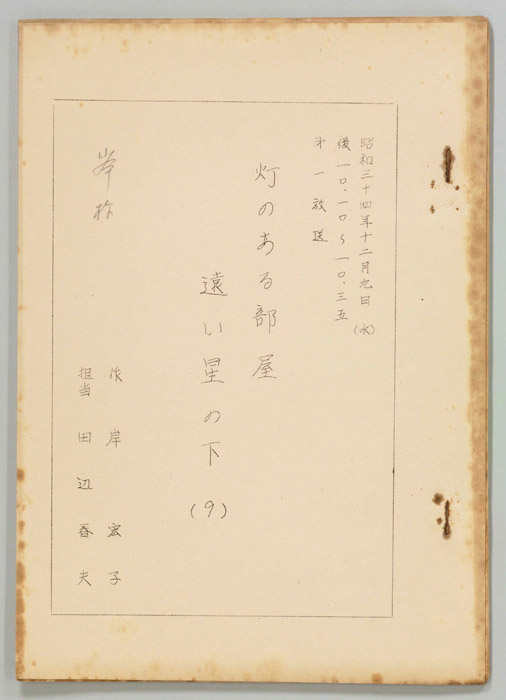 昭和三十四年十二月九日（水）
後一〇.一〇〜一〇.三五
オ一放送
灯のある部屋
遠い星の下
(9)
作 岸 宏子
担当 田辺春夫